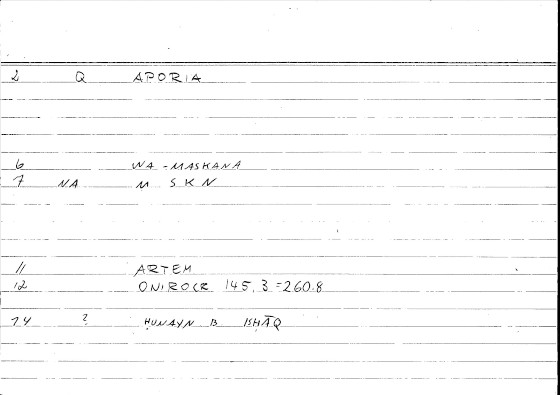 2 Q APORIA
6 WA-MASKANA
7 NA M S K N
11 ARTEM
12 ONIROCR 145,3=260.8
14 ? ḤUNAYN B ISḤĀQ